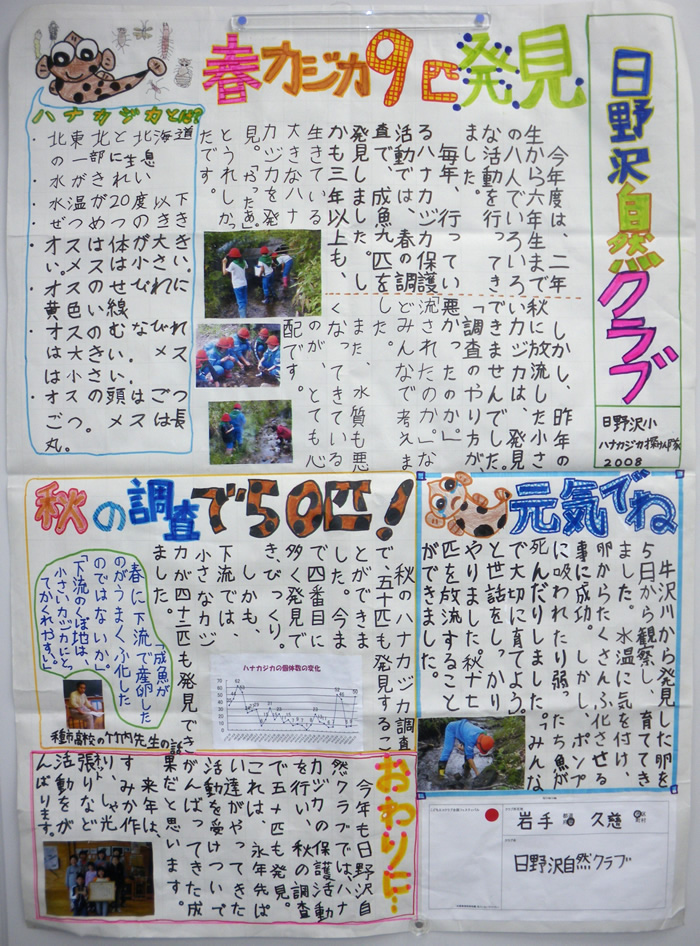 日野沢自然クラブ
日野沢小
ハナカジカ探けん隊
2008
春カジカ9ピ発見
今年度は、二年
生から六年生まで
の八人でいろいろ
な活動を行ってき
ました。
毎年、行ってい
るハナカジカ保護
活動では、春の調
査で、成魚九匹を
発見しました。し
かも三年以上も、
生きている
大きなハナ
カジカを発
見。「やったぁ」
とうれしかっ
たです。
しかし、昨年の
秋に放流した小さ
いカジカは、発見
できませんでした。
「調査のやり方が、
悪かったのか。」
「流されたのか。」な
どみんなで考えま
した。
また、水質も悪
くなってきている
のが、とても心
配です。
ハナカジカとは?
・北東北と北海道
の一部に生息
・水がきれい
・水温が20度以下
・ぜつめつのきき
・オスは体が大き
い。メスは小さい。
・オスのせびれに
黄色い線
・オスのむなびれ
は大きい。メス
は小さい。
・オスの頭はごつ
ごつ。メスは長
丸。
元気でね
牛沢川から発見した卵を
5日から観察し、育ててき
ました。水温に気を付け、
卵からたくさんふ化させる
事に成功。しかし、ポンプ
に吸われたり弱ったち魚が
死んだりしました。みんな
で大切に育てよう。
と世話をしっかり
やりました。秋七七
匹を放流すること
ができました。
秋の調査で50匹!
秋のハナカジカ調査
で、五十匹も発見するこ
とができま
した。今ま
で四番目に
多く発見で
き、びっくり。
しかも、
下流では、
小さなカジ
カが四十二匹も発見でき
ました。
「成魚が
春に下流で産卵した
のがうまく、ふ化した
のではないか。」
「下流のくぼ地は、
小さいカジカにとっ
てかくれやすい。」
種市高校の竹内先生の話
ハナカジカの個体数の変化
おわりに…
今年も日野沢自
然クラブでは、ハナ
カジカの保護活動
を行い、秋の調査
で五十匹も発見。
これは、永年先ぱ
い達がやってきた
活動を受けついで
がんばってきた成
果だと思います。
来年は、
すみか作
り、しゃ光
張りなど
活動をが
んばります。
岩手 久慈
日野沢自然クラブ